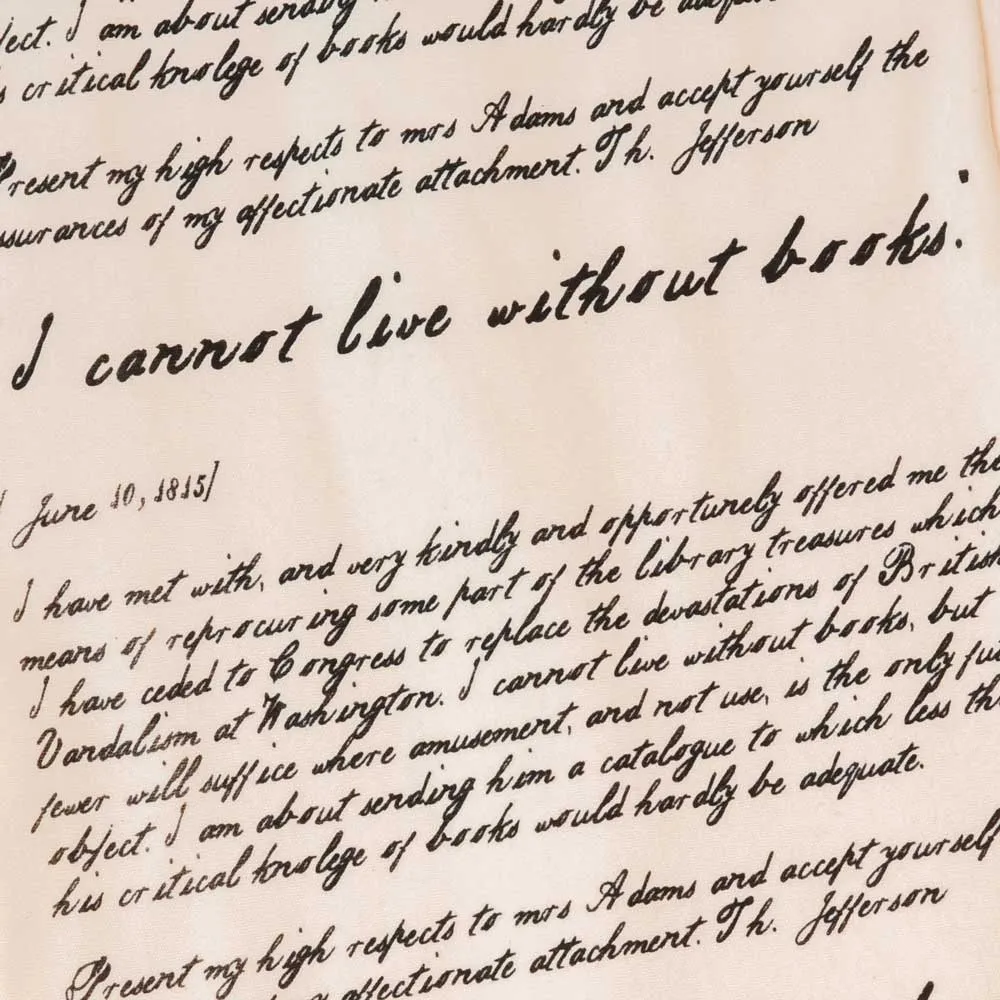 ject. I am about sending
s critical knolege of books would hardly be
Present my high respects to mrs Adams and accept yourself the
ssurances of my affectionate attachment. Th. Jefferson
I cannot live without books.
June 10, 1815]
I have met with, and very kindly and opportunely offered me the
means of reprocuring some part of the library treasures which
I have ceded to Congress to replace the devastations of British
Vandalism at Washington. I cannot live without books, but
fewer will suffice where amusement, and not use, is the only fu
object. I am about sending him a catalogue to which less th
his critical knolege of books would hardly be adequate.
Present my high respects to mrs Adams and accept yourself
affectionate attachment. Th. Jefferson